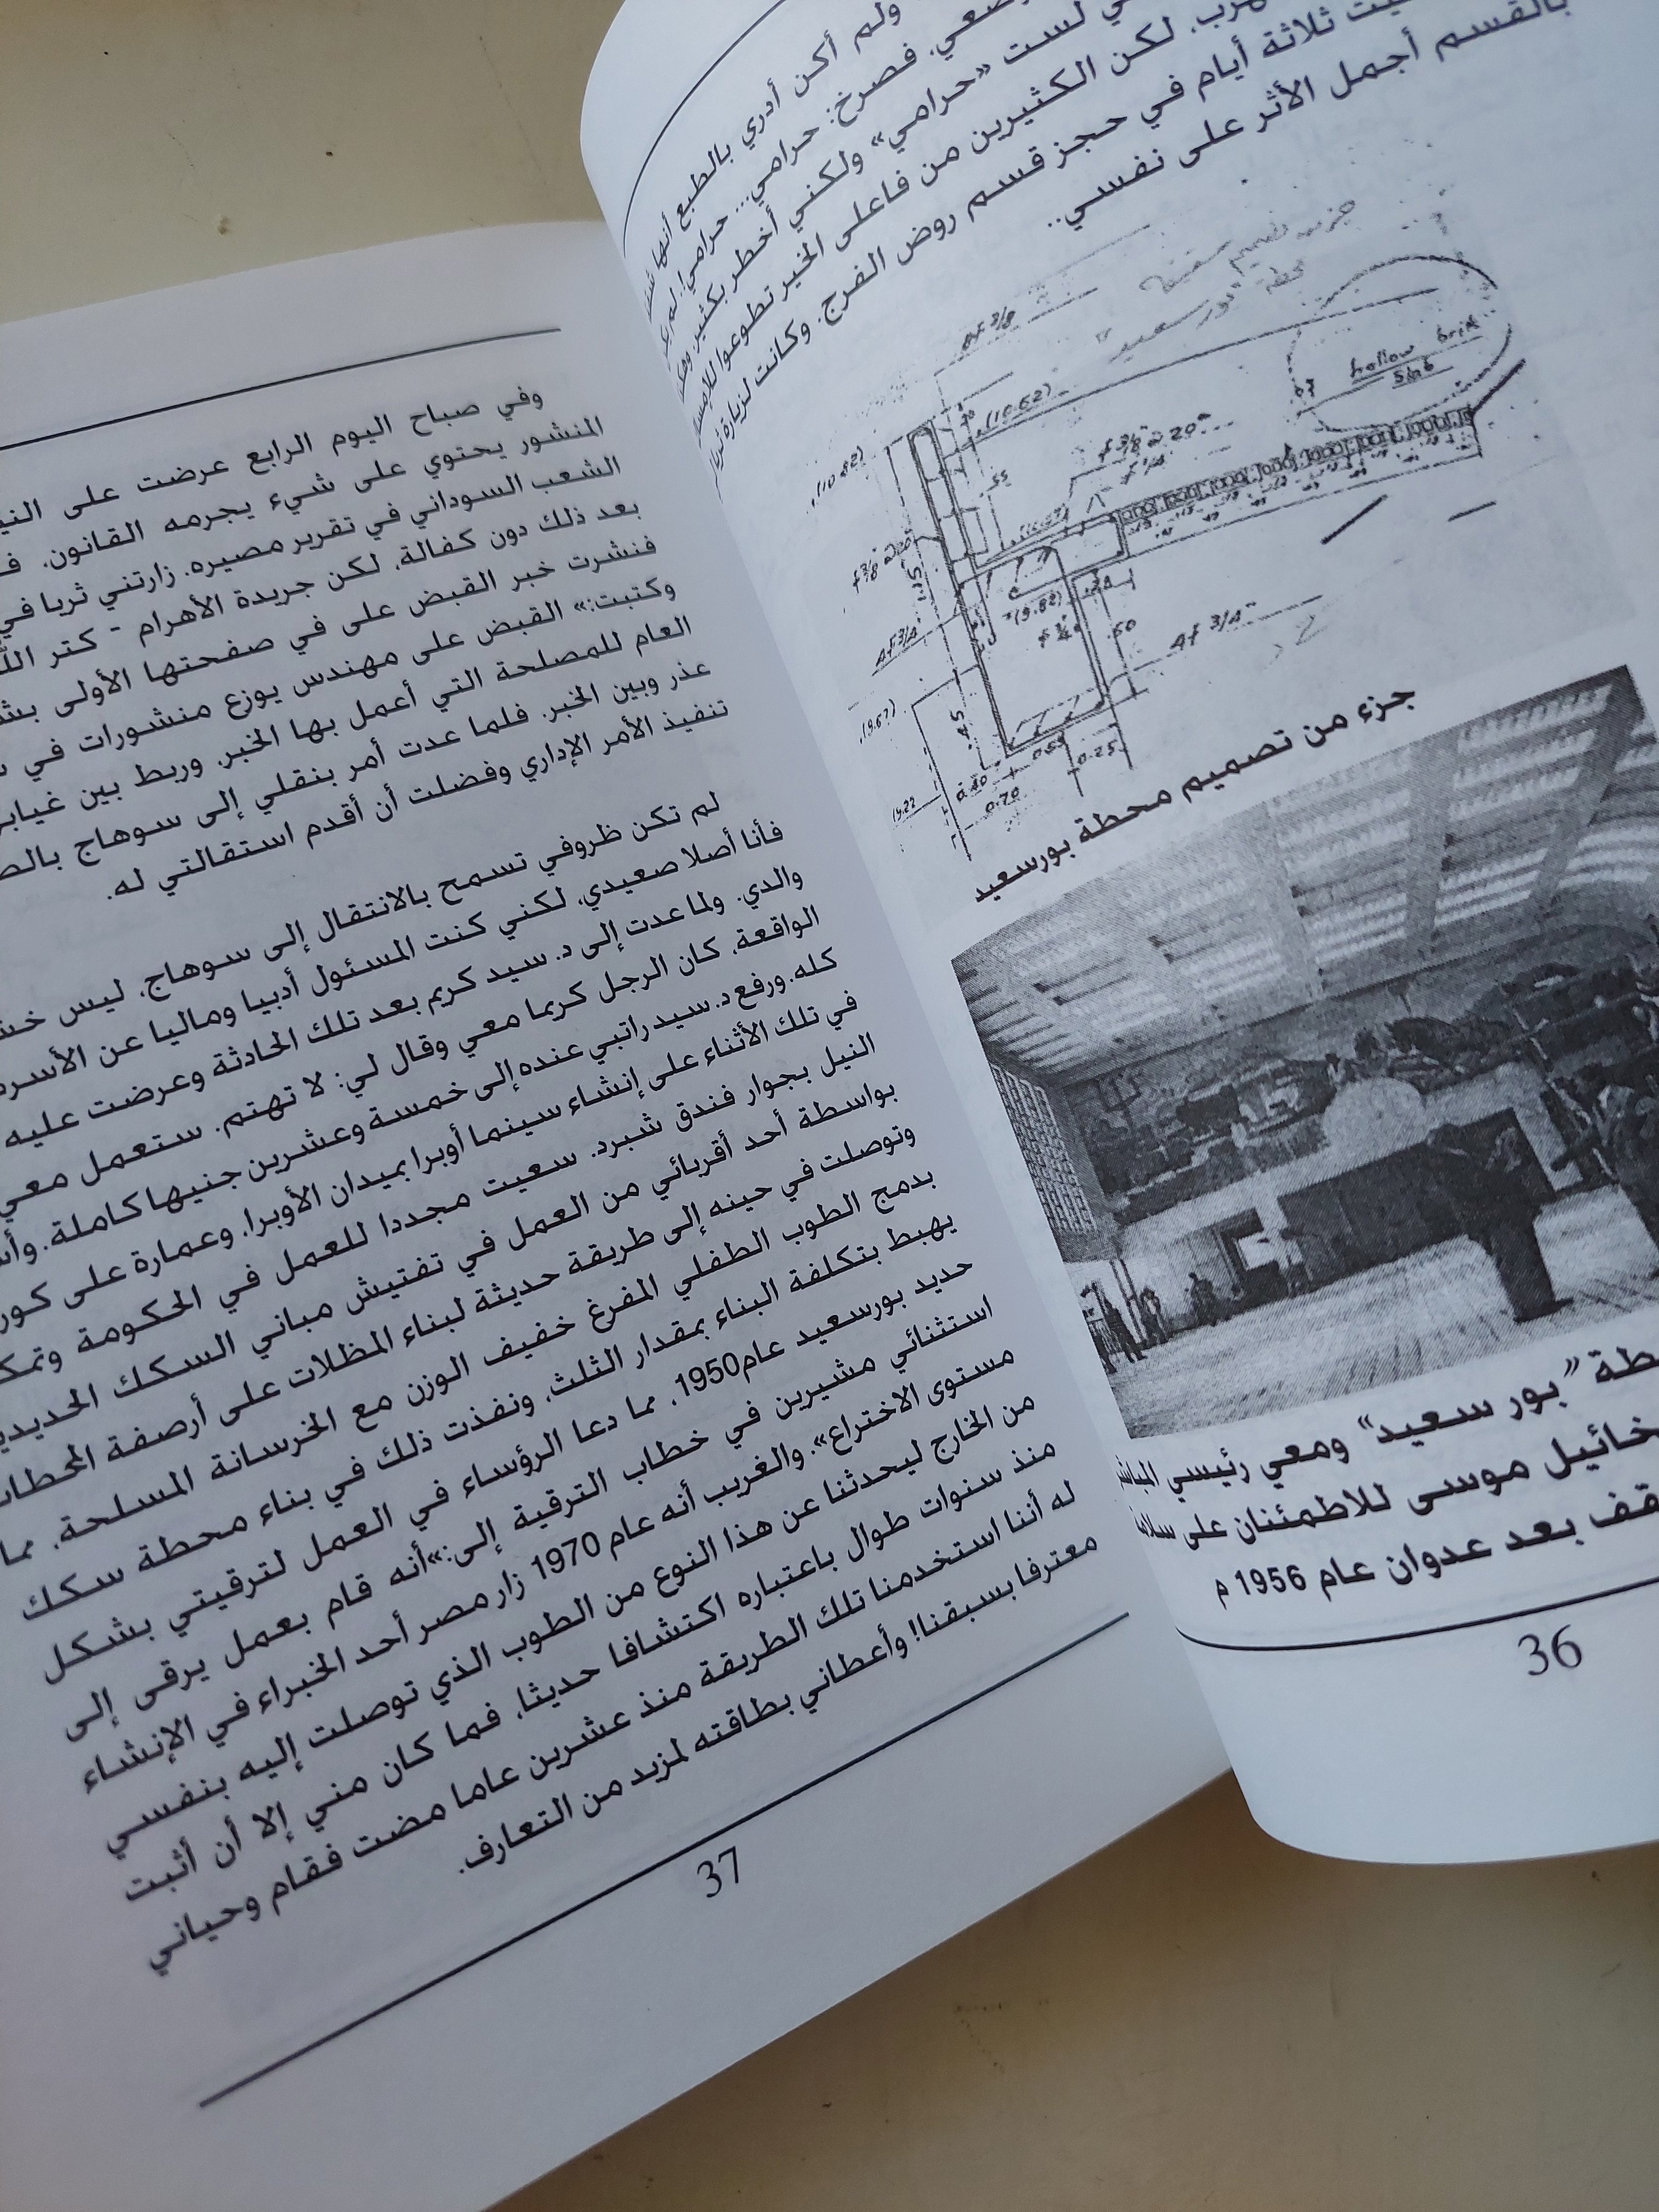 ولم أكن أدري بالطبع أنها
فصرخ: حرامي... حرامي! لم
لست «حرامي» ولكني أخطر بكثير
لكن الكثيرين من فاعلى الخير تطوعوا
ثلاثة أيام في حجز قسم روض الفرج. وكانت لزيارة
بالقسم أجمل الأثر على نفسي..
محطة "بور سعيد"
hollow brick
slab
(10.62)
(10.82)
(9.82)
(9.67)
.55
.60
.45
0.40
0.70
0.25
جزء من تصميم محطة بورسعيد
"بور سعيد" ومعي رئيسي
موسى للاطمئنان على
بعد عدوان عام 1956 م
36
وفي صباح اليوم الرابع عرضت على
المنشور يحتوي على شيء يجرمه القانون.
الشعب السوداني في تقرير مصيره. زارتني ثريا في
بعد ذلك دون كفالة، لكن جريدة الأهرام - كتر
فنشرت خبر القبض على في صفحتها الأولى
وكتبت:» القبض على مهندس يوزع منشورات في
العام للمصلحة التي أعمل بها الخبر، وربط بين
عذر وبين الخبر. فلما عدت أمر بنقلي إلى سوهاج
تنفيذ الأمر الإداري وفضلت أن أقدم استقالتي له.
لم تكن ظروفي تسمح بالانتقال إلى سوهاج، ليس
فأنا أصلا صعيدي، لكني كنت المسئول أدبيا وماليا عن
والدي. ولما عدت إلى د. سيد كريم بعد تلك الحادثة وعرضت عليه
الواقعة، كان الرجل كريما معي وقال لي: لا تهتم. ستعمل معي
كله. ورفع د. سيد راتبي عنده إلى خمسة وعشرين جنيها كاملة.
في تلك الأثناء على إنشاء سينما أوبرا بميدان الأوبرا، وعمارة على
النيل بجوار فندق شبرد. سعيت مجددا للعمل في الحكومة
بواسطة أحد أقربائي من العمل في تفتيش مباني السكك
وتوصلت في حينه إلى طريقة حديثة لبناء المظلات على أرصفة
بدمج الطوب الطفلي المفرغ خفيف الوزن مع الخرسانة المسلحة، مما
يهبط بتكلفة البناء بمقدار الثلث، ونفذت ذلك في بناء محطة سكك
حديد بورسعيد عام1950، مما دعا الرؤساء في العمل لترقيتي بشكل
استثنائي مشيرين في خطاب الترقية إلى:»أنه قام بعمل يرقى إلى
مستوى الاختراع». والغريب أنه عام 1970 زار مصر أحد الخبراء في الإنشاء
من الخارج ليحدثنا عن هذا النوع من الطوب الذي توصلت إليه بنفسي
منذ سنوات طوال باعتباره اكتشافا حديثا، فما كان مني إلا أن أثبت
له أننا استخدمنا تلك الطريقة منذ عشرين عاما مضت فقام وحياني
معترفا بسبقنا! وأعطاني بطاقته لمزيد من التعارف.
37